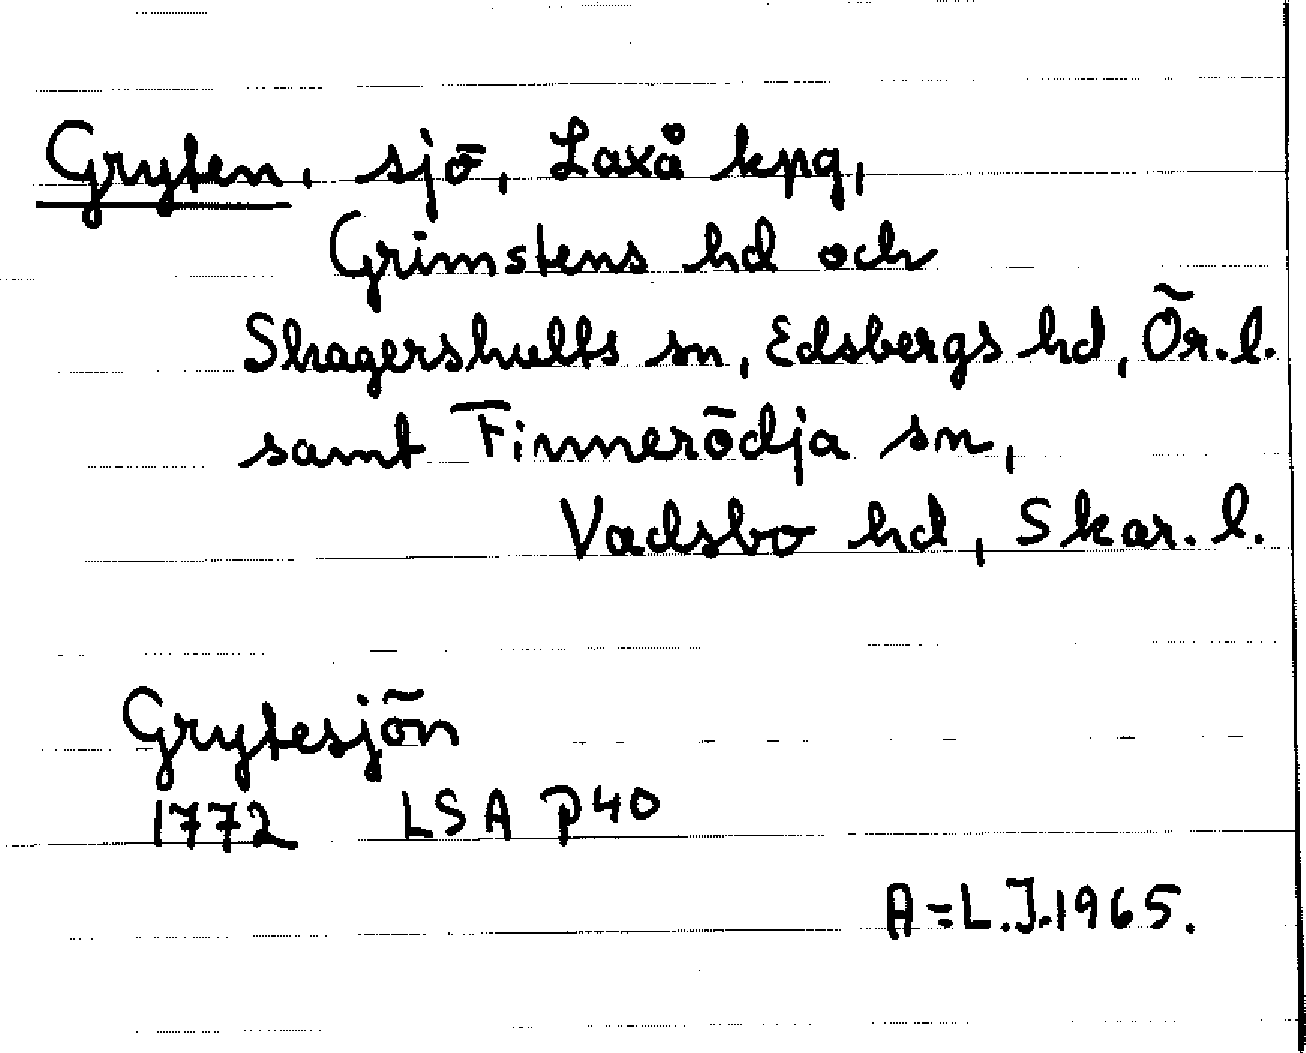 Gryten, sjö, Laxå kpg,
Grimstens hd och
Skagershults sn, Edsbergs hd, Ör. l.
samt Finnerödja sn,
Vadsbo hd, Skar. l.
Grytesjön
1772 LSA P40
A=L.J.1965.